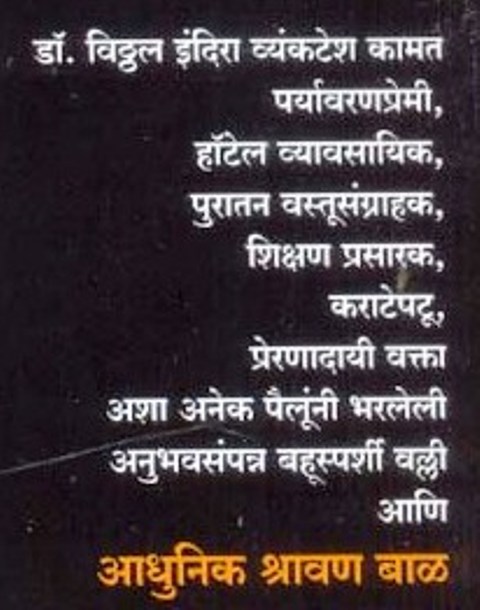 डॉ. विठ्ठल इंदिरा व्यंकटेश कामत
पर्यावरणप्रेमी,
हॉटेल व्यावसायिक,
पुरातन वस्तूसंग्राहक,
शिक्षण प्रसारक,
कराटेपटू,
प्रेरणादायी वक्ता
अशा अनेक पैलूंनी भरलेली
अनुभवसंपन्न बहूस्पर्शी वल्ली
आणि
आधुनिक श्रावण बाळ